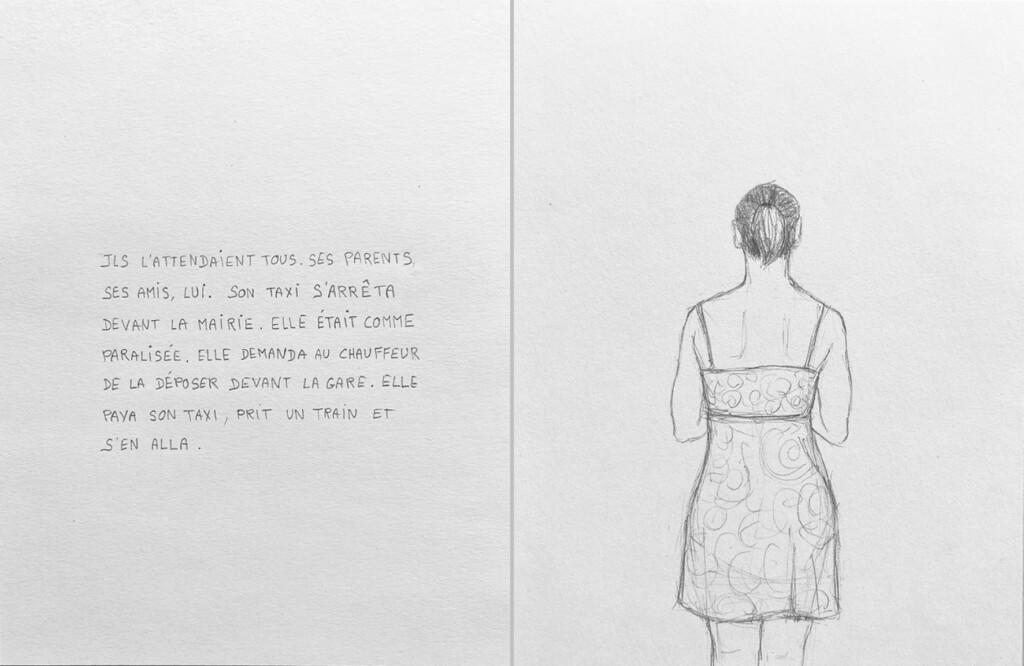 ILS L'ATTENDAIENT TOUS. SES PARENTS,
SES AMIS, LUI. SON TAXI S'ARRÊTA
DEVANT LA MAIRIE. ELLE ÉTAIT COMME
PARALISÉE. ELLE DEMANDA AU CHAUFFEUR
DE LA DÉPOSER DEVANT LA GARE. ELLE
PAYA SON TAXI, PRIT UN TRAIN ET
S'EN ALLA.